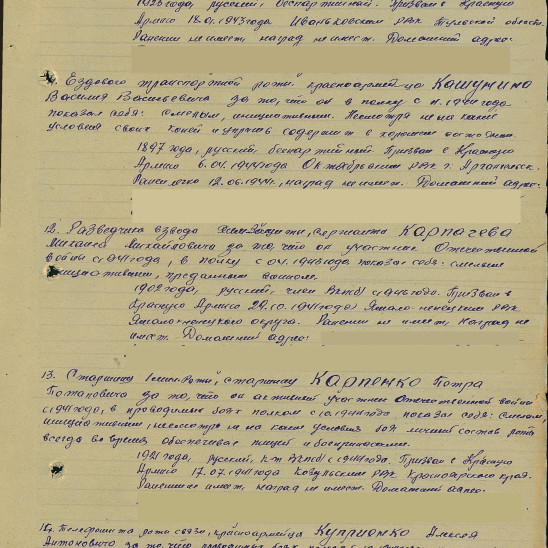 1923 года, русский, беспартийный. Призван в Красную
Армию 18.01.1943 года Иваньковским РВК Тульской области.
Ранений не имеет, наград не имеет. Домашний адрес:
Ездового транспортной роты красноармейца Кашунина
Василия Васильевича за то, что он в полку с 1944 года
показал себя: смелым, инициативным. Несмотря ни на какие
условия своих коней и упряжь содержит в хорошем состоянии.
1897 года, русский, беспартийный Призван в Красную
Армию 6.04.1944 года Октябрьским РВК г. Архангельск.
Ранен легко 12.06.1944г., наград не имеет. Домашний адрес:
12. Разведчика взвода химзащиты, сержанта Карпачева
Михаила Михайловича за то, что он участник Отечественной
войны с 1941 года, в полку с 04.1943 года показал себя: смелым
инициативным, преданным воином.
1902 года, русский, член ВКП(б) с 1946 года. Призван в
Красную Армию 24.10.1941 года Ямало-ненецким РВК
Ямало-ненецкого округа. Ранений не имеет, наград не
имеет. Домашний адрес:
13. Старшину роты, старшину Карпенко Петра
Потаповича за то, что он активный участник Отечественной войны
с 1941 года, в проводимых боях полком с 10.1944 года показал себя: смелым,
инициативным, несмотря ни на какие условия боя личный состав роты
всегда во время обеспечивает пищей и боеприпасами.
1921 года, русский, к-т ВКП(б) с 1944 года. Призван в Красную
Армию 17.07.1941 года РВК Красноярского края.
Ранений не имеет, наград не имеет. Домашний адрес:
14. Телефониста роты связи, красноармейца Куприенко Алексея
Антоновича за то, что